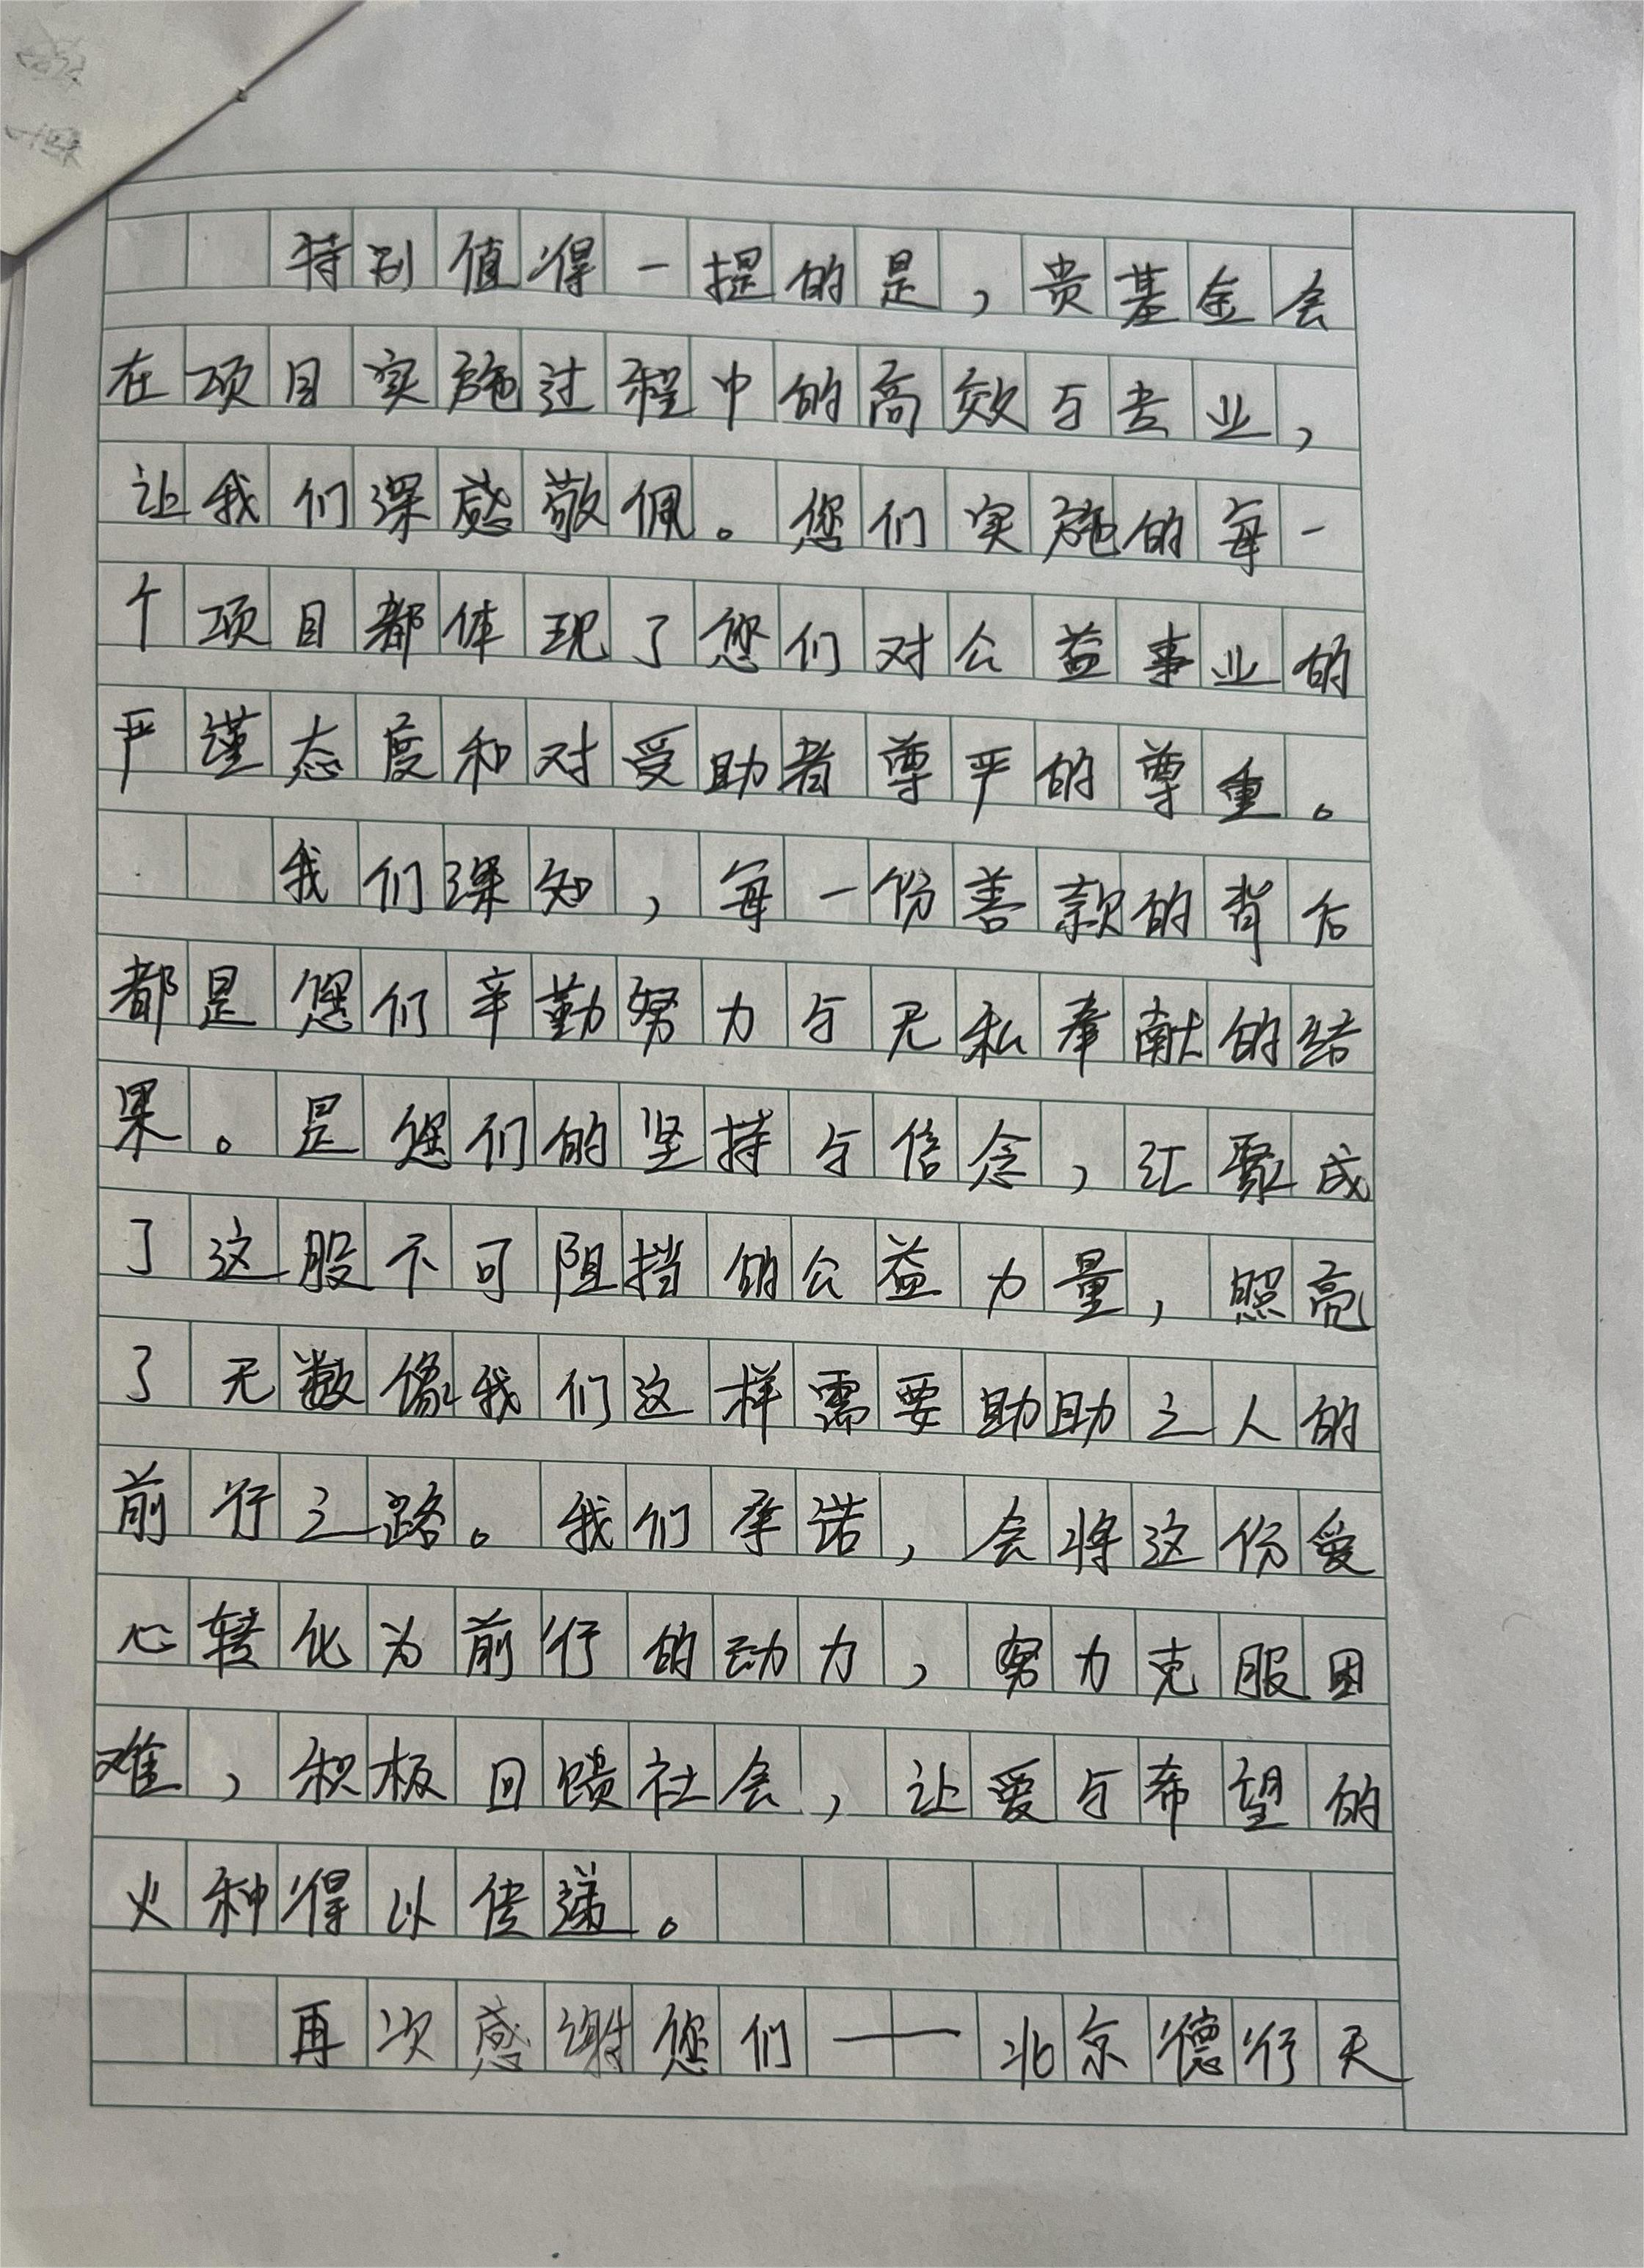 特别值得一提的是，贵基金会
在项目实施过程中的高效与专业，
让我们深感敬佩。您们实施的每一
个项目都体现了您们对公益事业的
严谨态度和对受助者尊严的尊重。
我们深知，每一份善款的背后
都是您们辛勤努力与无私奉献的结
果。是您们的坚持与信念，汇聚成
了这股不可阻挡的公益力量，照亮
了无数像我们这样需要助助之人的
前行之路。我们承诺，会将这份爱
心转化为前行的动力，努力克服困
难，积极回馈社会，让爱与希望的
火种得以传递。
再次感谢您们——北京德行天